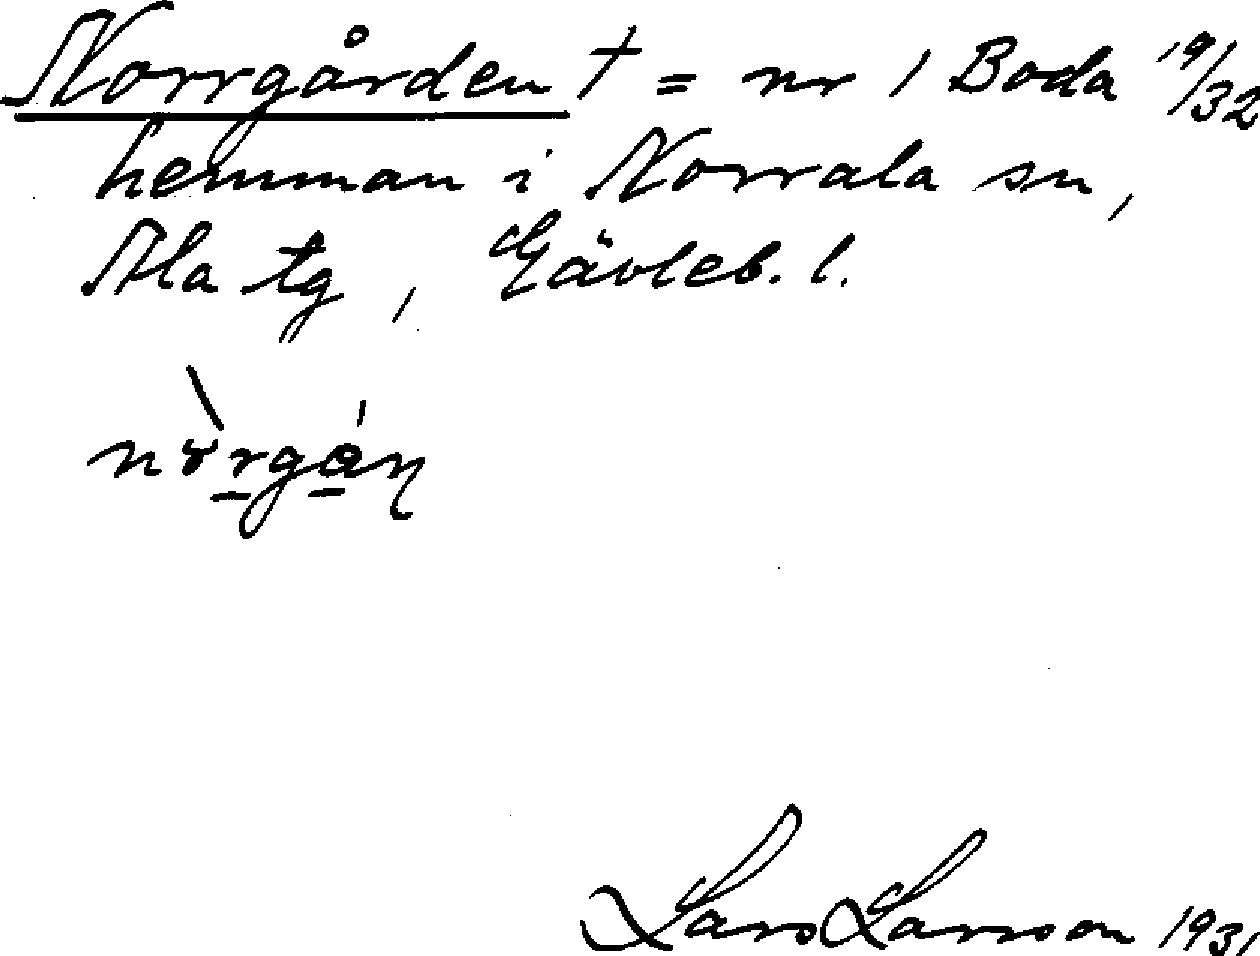 Norrgården † = nr 1 Boda 19/32
hemman i Norrala sn,
Ala tg, Gävleb. l.
Lars Larsson 1931